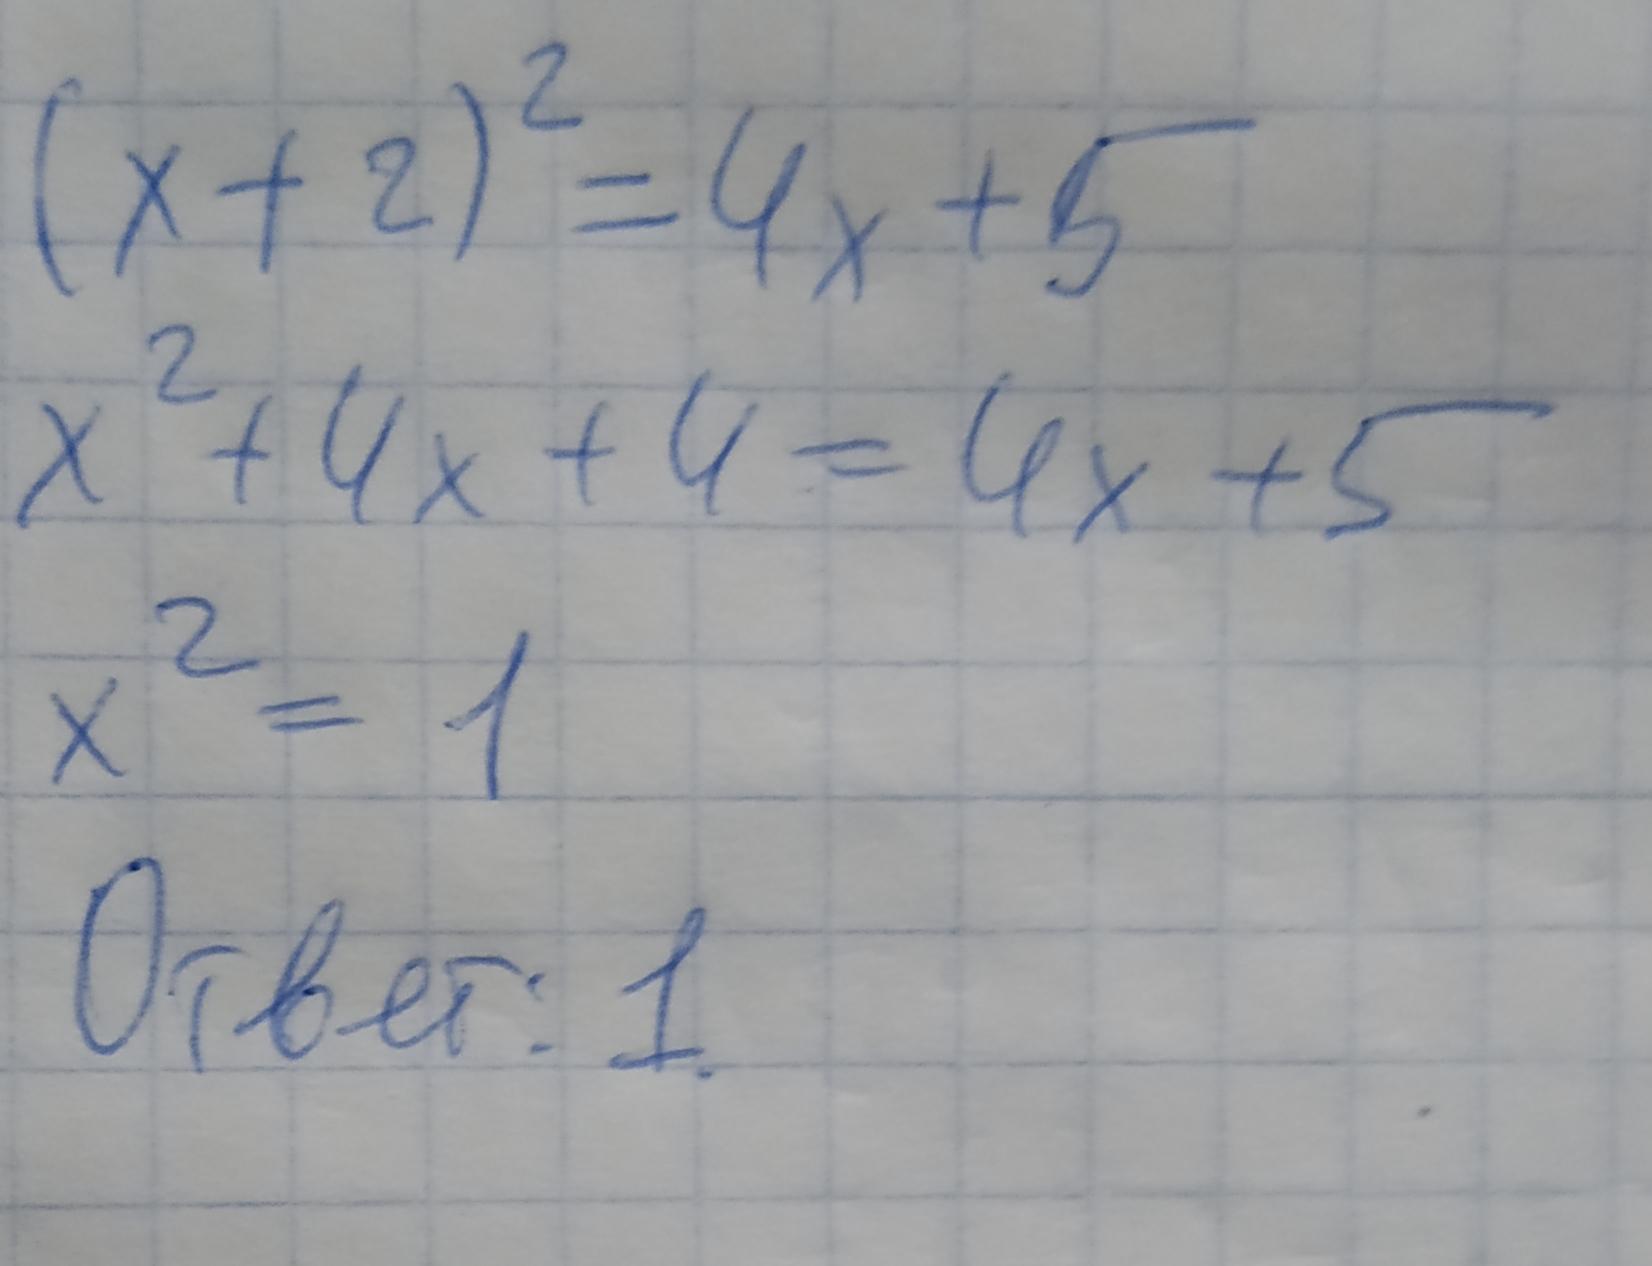 (x+2)² = 4x + 5
x² + 4x + 4 = 4x + 5
x² = 1
Ответ: 1.